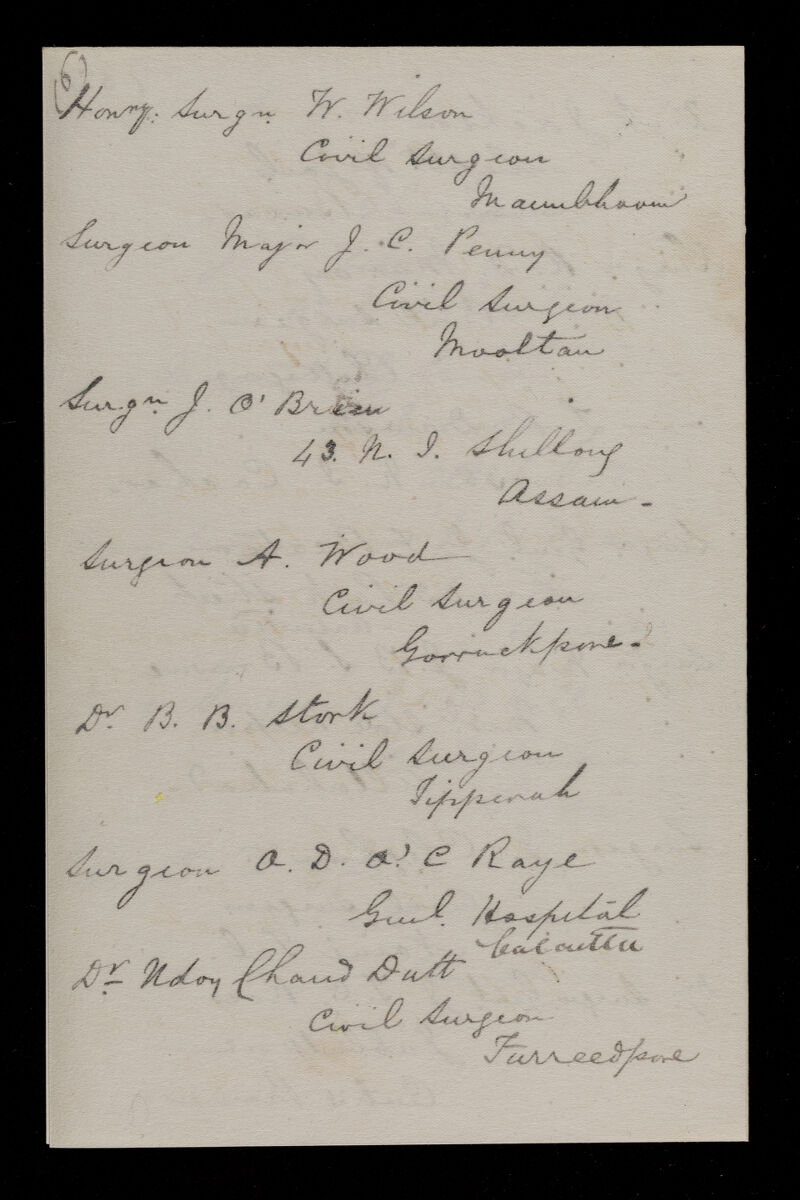 (6)
Honry: Surgn. W. Wilson
Civil Surgeon
Maunbhoom
Surgeon Major J. C. Penny
Civil Surgeon
Mooltan
Surgn J. O'Brien
43. N. I. Shillong
Assam -
Surgeon A. Wood
Civil Surgeon
Gorruckpore -
Dr. B. B. Stork
Civil Surgeon
Tipperah
Surgeon O. D. O'C Raye
Genl. Hospital
Calcutta
Dr. Udoy Chand Dutt
Civil Surgeon
Furreedpore